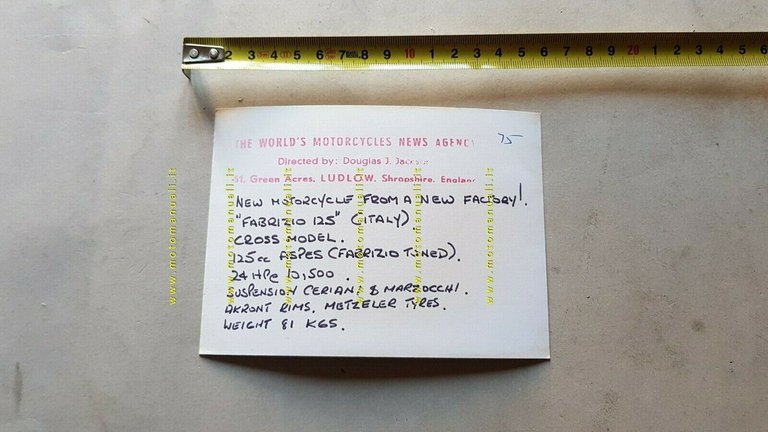 2 3 4 5 6 7 8 9 10 1 2 3 4 5 6 7 8 9 20 1 2 3 4 5 6
THE WORLD'S MOTORCYCLES NEWS AGENCY
75
Directed by: Douglas J. Jackson
31, Green Acres, LUDLOW, Shropshire, England
NEW MOTORCYCLE FROM A NEW FACTORY!.
"FABRIZIO 125" (ITALY)
CROSS MODEL.
125cc ASPES (FABRIZIO TUNED).
24 HP@ 10,500.
SUSPENSION CERIANI & MARZOCCHI.
AKRONT RIMS. METZELER TYRES.
WEIGHT 81 KGS.
www.motomanuali.it
www.motomanuali.it
www.motomanuali.it
www.motomanuali.it
www.motomanuali.it
www.motomanuali.it